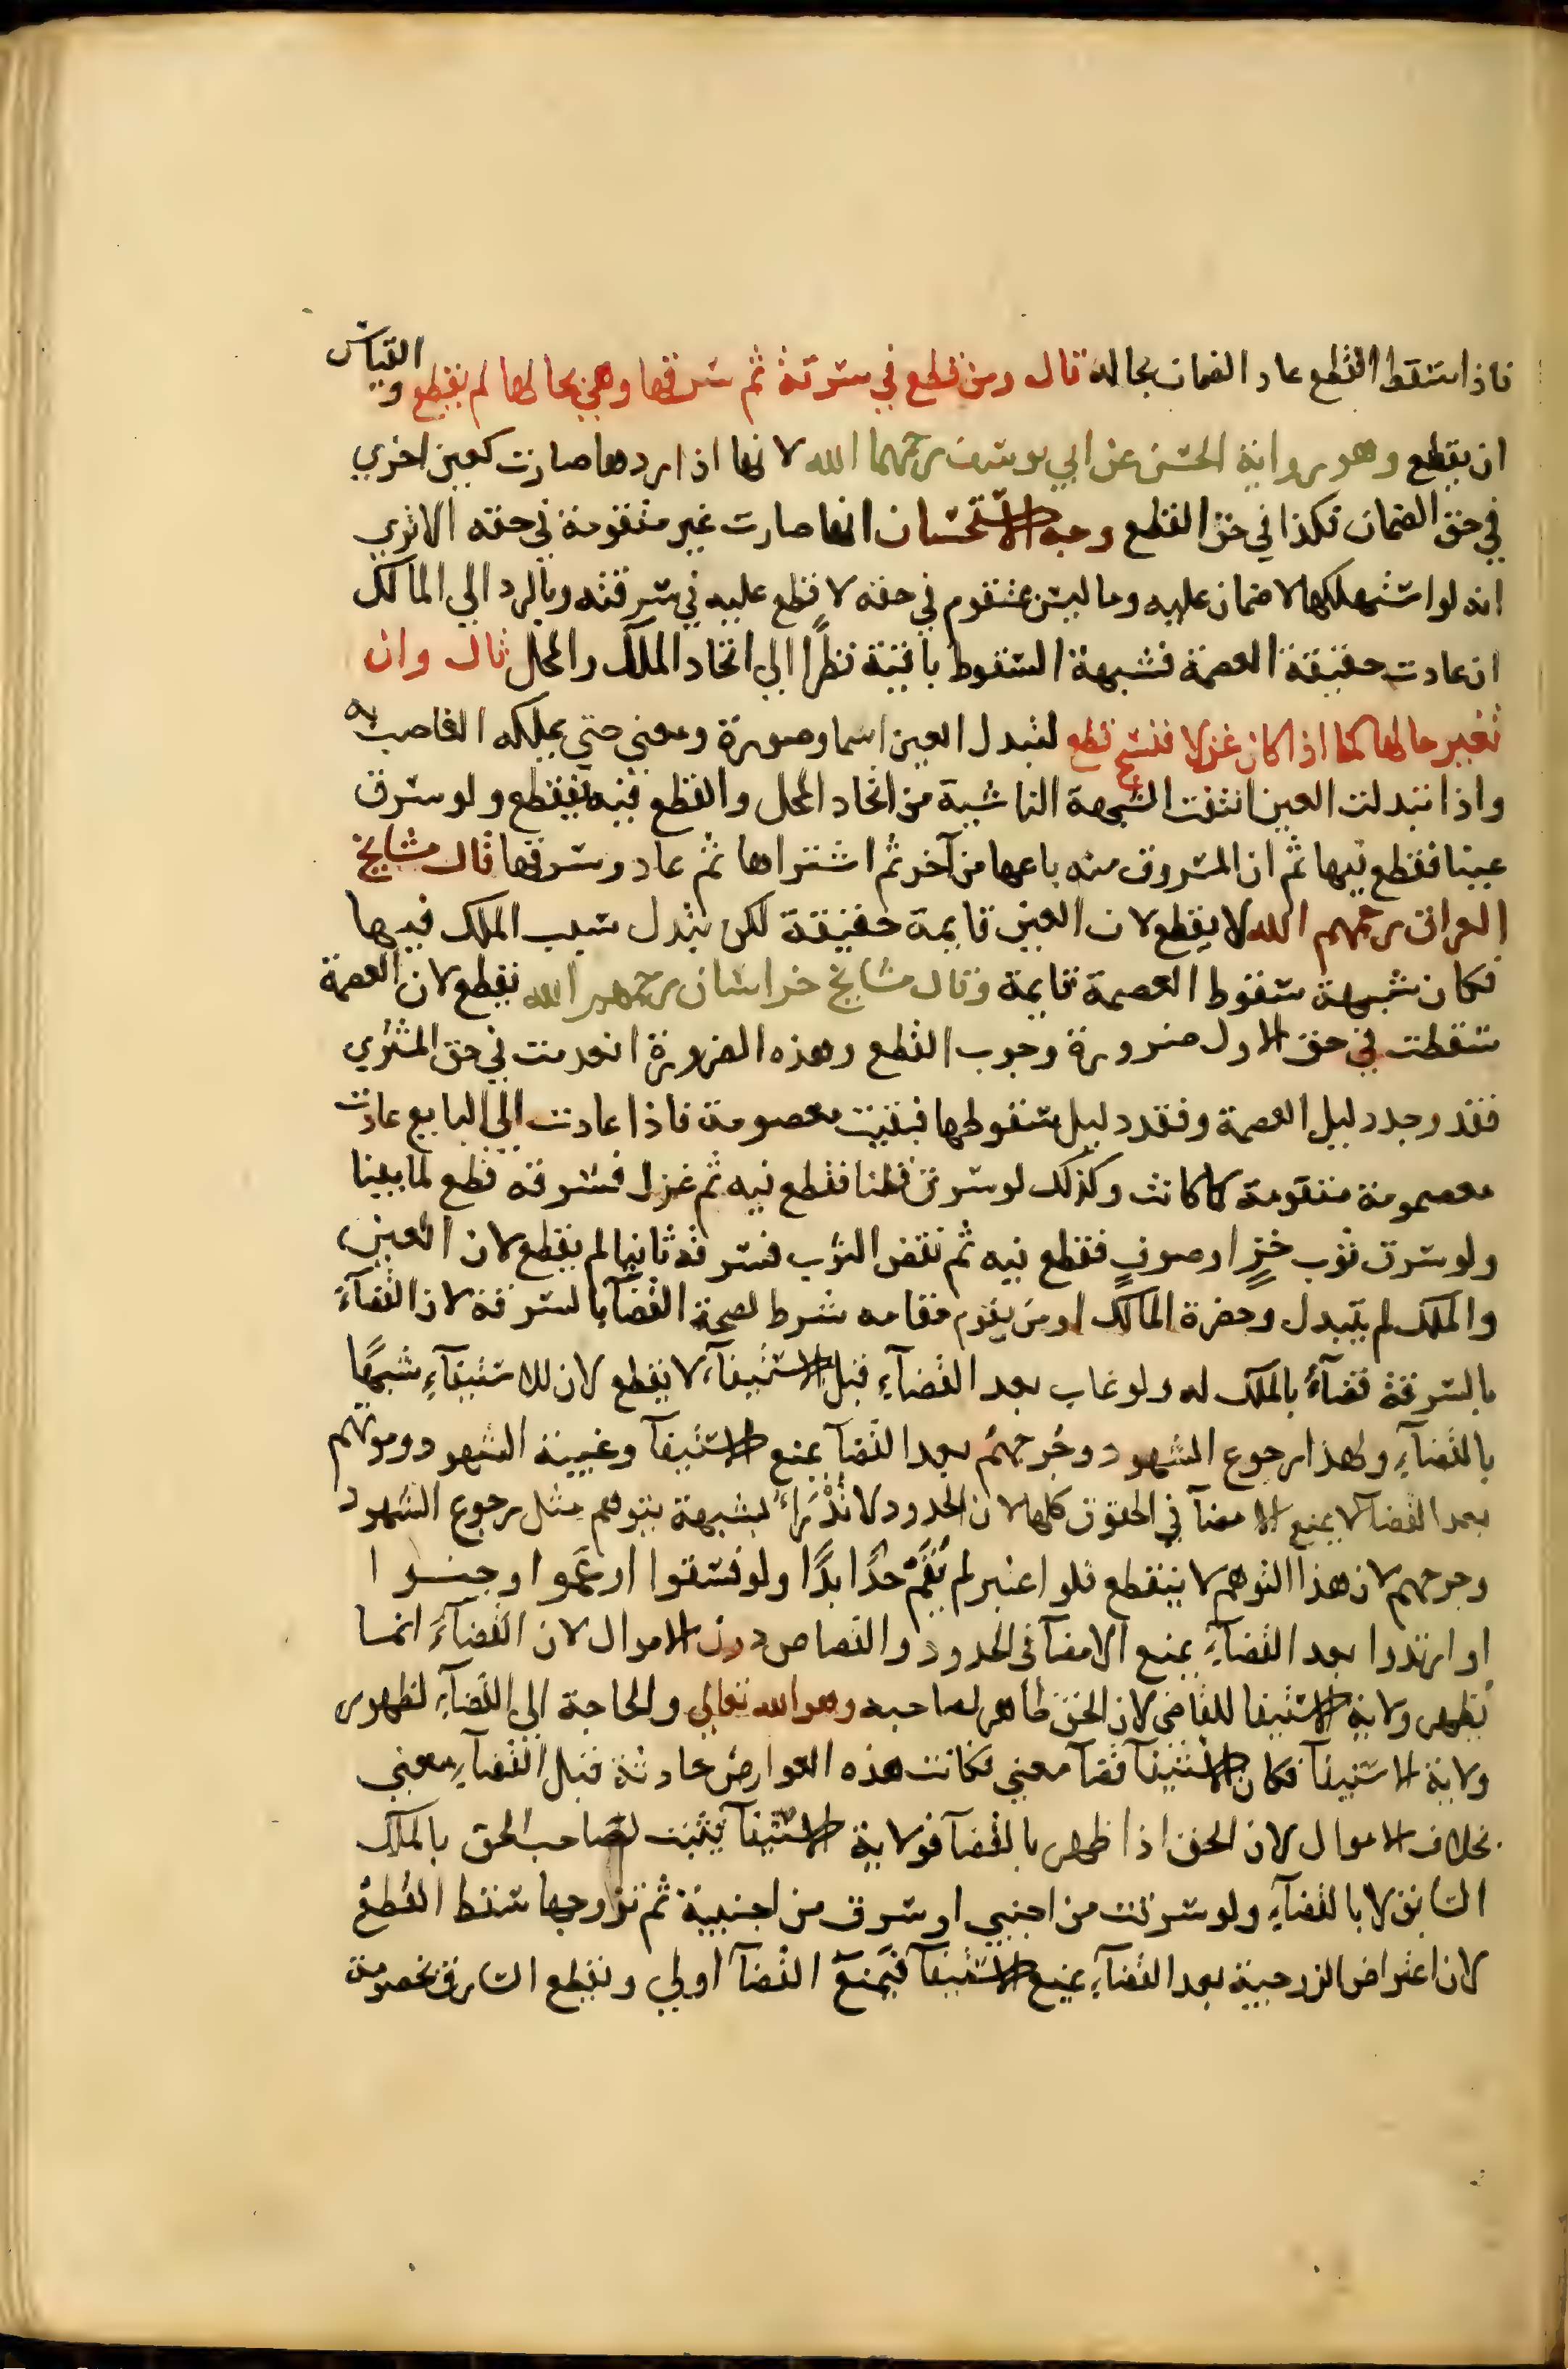 فاذا سقط القطع عاد الضمان بحاله قال ومن قطع في سرقة ثم سرقها وهي بحالها لم يقطع والقياس
ان يقطع وهو رواية الحسن عن ابي يوسف رحمهما الله لانها اذا ردها صارت كعين اخري
في حق الضمان فكذا في حق القطع وجه الاستحسان انها صارت غير متقومة في حقه الا تري
انه لو استهلكها لا ضمان عليه وما ليس بمتقوم في حقه لا قطع عليه في سرقته وبالرد الي المالك
ان عادت حقيقة العصمة فشبهة السقوط باقية نظرًا الي اتحاد الملك والمحل قال وان
تغير حالها كما اذا كان غزلا فنسج قطع لتبدل العين اسما وصورة ومعني حتي يملكه الغاصب به
واذا تبدلت العين انتفت الشبهة الناشية من اتحاد المحل والقطع فيه فيقطع ولو سرق
عينا فقطع فيها ثم ان المسروق منه باعها من آخر ثم اشتراها ثم عاد وسرقها قال مشايخ
العراق رحمهم الله لا يقطع لان العين قايمة حقيقة لكن تبدل سبب الملك فيها
فكان شبهة سقوط العصمة قايمة وقال مشايخ خراسان رحمهم الله يقطع لان العصمة
سقطت في حق الاول ضرورة وجوب القطع وهذه الضرورة انعدمت في حق المشتري
فقد وجد دليل العصمة وفقد دليل سقوطها فبقيت معصومة فاذا عادت الي البايع عادت
معصومة متقومة كما كانت وكذلك لو سرق قطنا فقطع فيه ثم غزل فسرقه قطع لما بينا
ولو سرق ثوب خزٍّ او صوفٍ فقطع فيه ثم نقض الثوب فسرقه ثانيا لم يقطع لان العين
والملك لم يتبدل وحضرة المالك او من يقوم مقامه شرط لصحة القضآ بالسرقة لان القضآءَ
بالسرقة قضآءٌ بالملك له ولو غاب بعد القضآءِ قبل الاستيفآء لا يقطع لان للاستيفآءِ شبهًا
بالقضآءِ ولهذا رجوع الشهود وجرحهم بعد القضآ يمنع الاستيفآ وغيبة الشهود وموتهم
بعد القضآ لا يمنع الامضآ في الحقوق كلها لان الحدود لا تُدْرَاءُ لشبهة يتوهم مثل رجوع الشهود
وجرحهم لان هذا التوهم لا ينقطع فلو اعتبر لم يُقَمْ حدًّا ابدًا ولو فسقوا او عموا وجنوا
او ارتدوا بعد القضآءِ يمنع الامضآ في الحدود والقصاص دون الاموال لان القضآءَ انما
يُظهر ولاية الاستيفا للقاضي لان الحق ظاهر لصاحبه وهو الله تعالي والحاجة الي القضآءِ لظهور
ولاية الاستيفآ فكان الاستيفآ قضآ معني فكانت هذه العوارض حادثة قبل القضآءِ معني
بخلاف الاموال لان الحق اذا ظهر بالقضآ فولاية الاستيفآ يثبت لصاحب الحق بالملك
السابق لا بالقضآءِ ولو سرقت من اجنبي او سرق من اجنبية ثم تزوجها سقط القطع
لان اعتراض الزوجية بعد القضآءِ يمنع الاستيفآ فيمنعَ القضآ اولي ويقطع السارق بخصومة